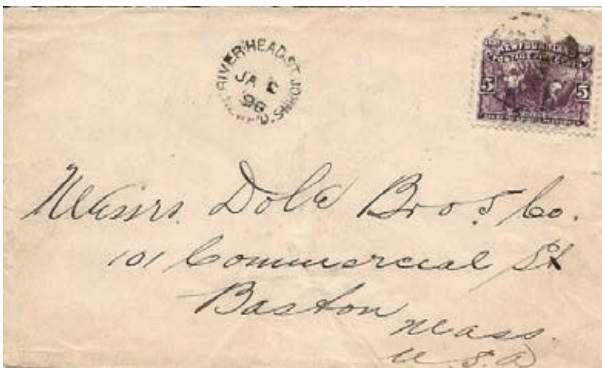 RIVER HEAD ST. JOHN'S
JA
98
NEWF'D.
NEWFOUNDLAND
5 5
Messrs. Dole Bros. Co.
101 Commercial St
Boston
Mass.
U.S.A